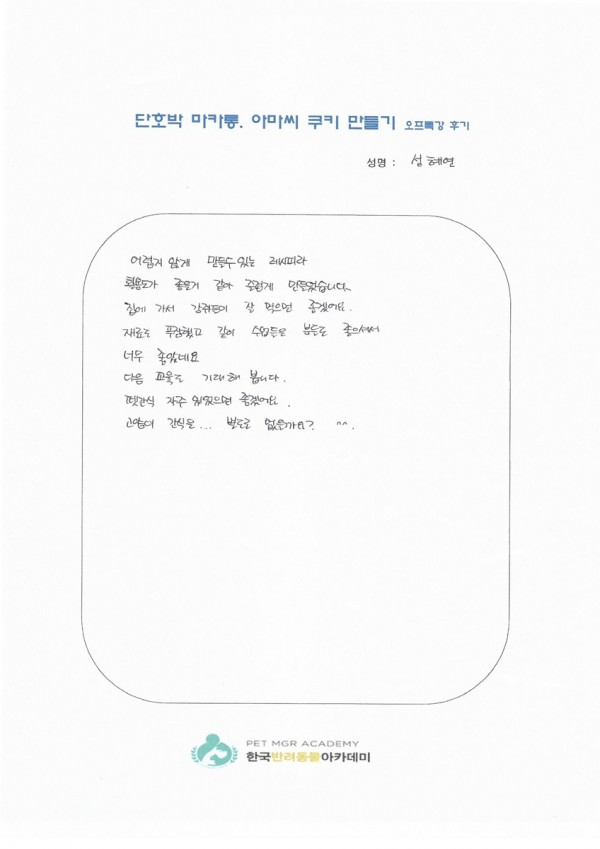 단호박 마카롱. 아마씨 쿠키 만들기 오프특강 후기
성명 : 설혜연
어렵지 않게 만들수 있는 레시피라
활용도가 좋을거 같아 즐겁게 만들었습니다.
집에 가서 강쥐들이 잘 먹으면 좋겠어요.
재료도 푸짐했고 같이 수업듣는 분들도 좋으셔서
너무 좋았네요
다음 교육도 기대해 봅니다.
펫간식 자주 있었으면 좋겠어요.
고양이 간식은... 별도로 없는가요? ^^.
PET MGR ACADEMY
한국반려동물아카데미